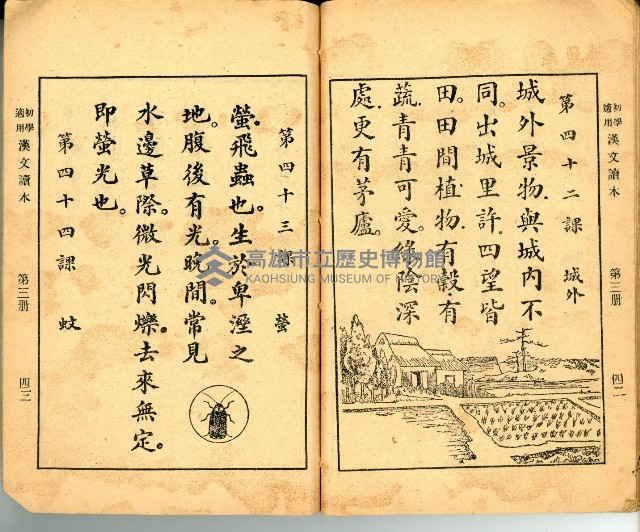 初學適用 漢文讀本 第三册 四二
第四十二課 城外
城外景物.與城内不
同。出城里許.四望皆
田。田間植物.有穀.有
蔬.青青可愛.綠陰深
處.更有茅廬。
第四十三課 螢
螢.飛蟲也。生於卑溼之
地。腹後有光。晚間.常見
水邊草際.微光閃爍。去來無定。
即螢光也。
第四十四課 蚊
初學適用 漢文讀本 第三册 四三
高雄市立歷史博物館
KAOHSIUNG MUSEUM OF HISTORY